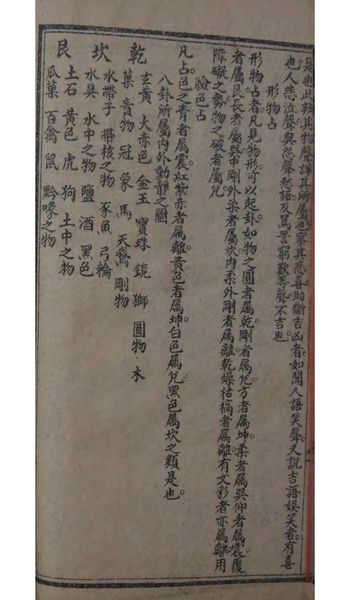 是也此靜其物聲詳其所屬也察其悲喜助斷吉凶者如聞人語笑聲又說吉語娛笑者有喜
也人悲泣聲與怨聲愁語及罵詈窮歎等聲不吉也
形物占
形物占者凡見物形可以起卦如物之圓者屬乾剛者屬兌方者屬坤柔者屬巽仰者屬震覆
者屬艮長者屬巽中剛外柔者屬坎內柔外剛者屬離乾燥枯槁者屬離有文彩者亦屬離用
障礙之勢物之破者屬兌
驗色占
凡占色之青者屬震紅紫赤者屬離黃色者屬坤白色屬兌黑色屬坎之類是也
八卦所屬內外動靜之圖
乾 玄黃 大赤色 金玉 寶珠 鏡 獅 圓物 木
菓 貴物 冠 象 馬 天鵞 剛物
坎 水帶子 帶核之物 豕魚 弓輪
水具 水中之物 鹽 酒 黑色
艮 土石 黃色 虎 狗 土中之物
瓜菓 百禽 鼠 黔喙之物